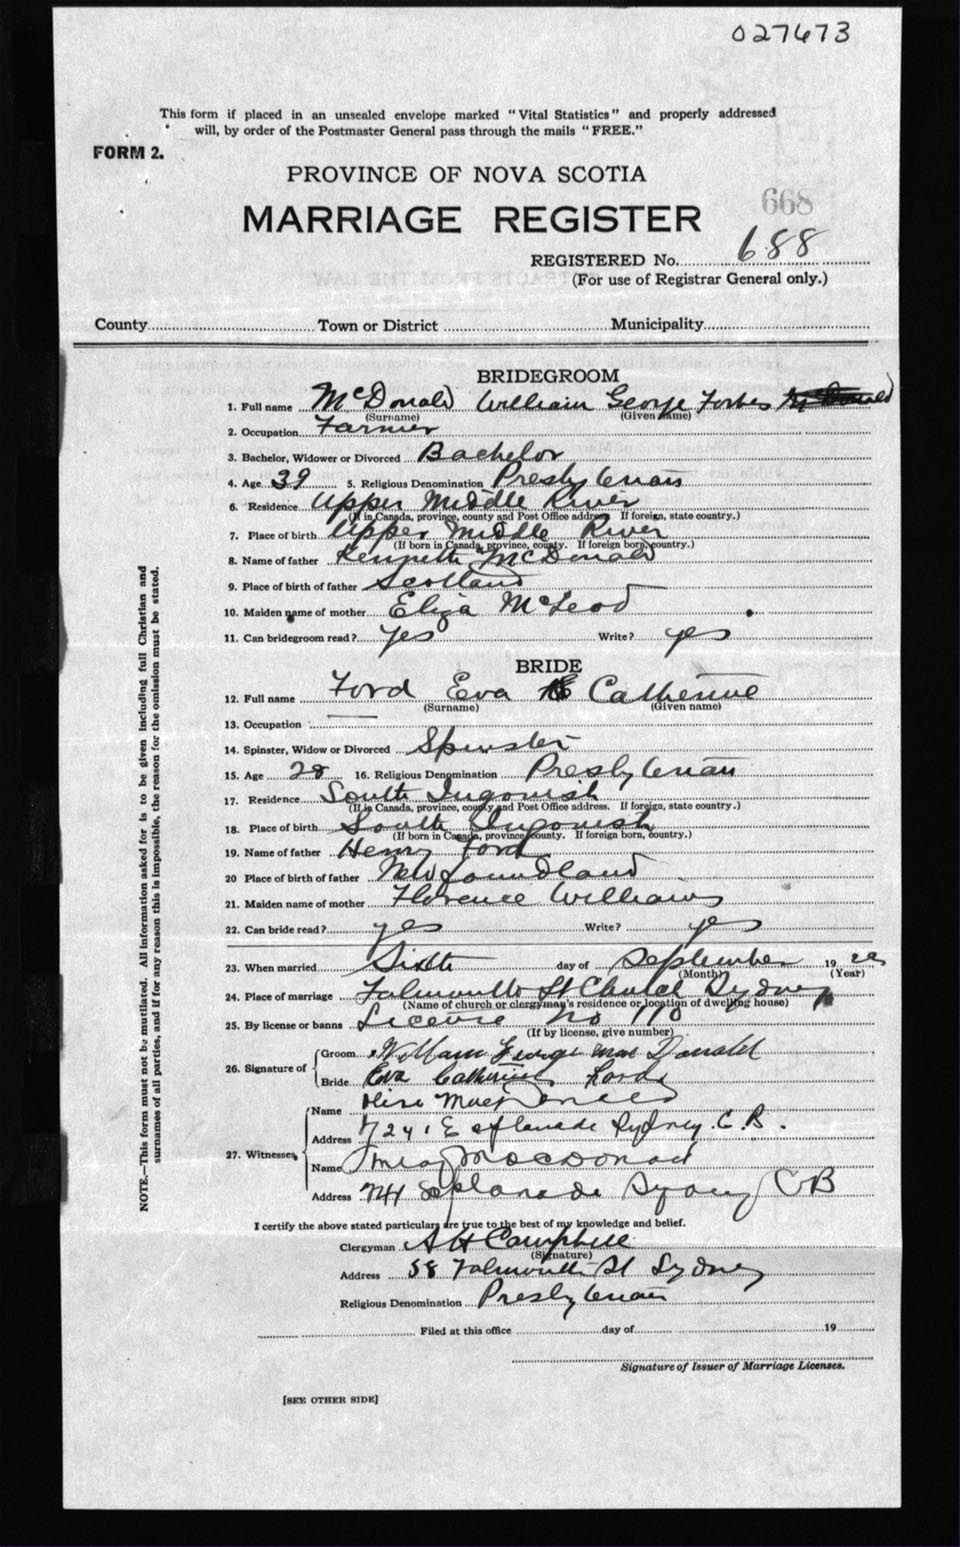 027673
This form if placed in an unsealed envelope marked "Vital Statistics" and properly addressed
will, by order of the Postmaster General pass through the mails "FREE."
FORM 2.
PROVINCE OF NOVA SCOTIA
668
MARRIAGE REGISTER
REGISTERED No. 688
(For use of Registrar General only.)
County Town or District Municipality
BRIDEGROOM
1. Full name McDonald William George Forbes
(Surname) (Given name)
2. Occupation Farmer
3. Bachelor, Widower or Divorced Bachelor
4. Age 39 5. Religious Denomination Presbyterian
6. Residence Upper Middle River
(If in Canada, province, county and Post Office address. If foreign, state country.)
7. Place of birth Upper Middle River
(If born in Canada, province, county. If foreign born, country.)
8. Name of father Kenneth McDonald
9. Place of birth of father Scotland
10. Maiden name of mother Eliza McLeod
11. Can bridegroom read? yes Write? yes
BRIDE
12. Full name Ford Eva Catherine
(Surname) (Given name)
13. Occupation
14. Spinster, Widow or Divorced Spinster
15. Age 28 16. Religious Denomination Presbyterian
17. Residence South Ingonish
(If in Canada, province, county and Post Office address. If foreign, state country.)
18. Place of birth South Ingonish
(If born in Canada, province county. If foreign born, country.)
19. Name of father Henry Ford
20 Place of birth of father Newfoundland
21. Maiden name of mother Florence Williams
22. Can bride read? yes Write? yes
23. When married Sixth day of September 19
(Month) (Year)
24. Place of marriage Falmouth St Church Sydney
(Name of church or clergyman's residence or location of dwelling house)
25. By license or banns License No 110
(If by license, give number)
26. Signature of
Groom William George Mac Donald
Bride Eva Catherine Ford
27. Witnesses
Name
Address Esplanade Sydney C.B.
Name MacDonald
Address Esplanade Sydney CB
I certify the above stated particulars are true to the best of my knowledge and belief.
Clergyman A H Campbell
(Signature)
Address 58 Falmouth St Sydney
Religious Denomination Presbyterian
Filed at this office day of 19
Signature of Issuer of Marriage Licenses.
[SEE OTHER SIDE]
NOTE.—This form must not be mutilated. All information asked for is to be given including full Christian and
surnames of all parties, and if for any reason this is impossible, the reason for the omission must be stated.